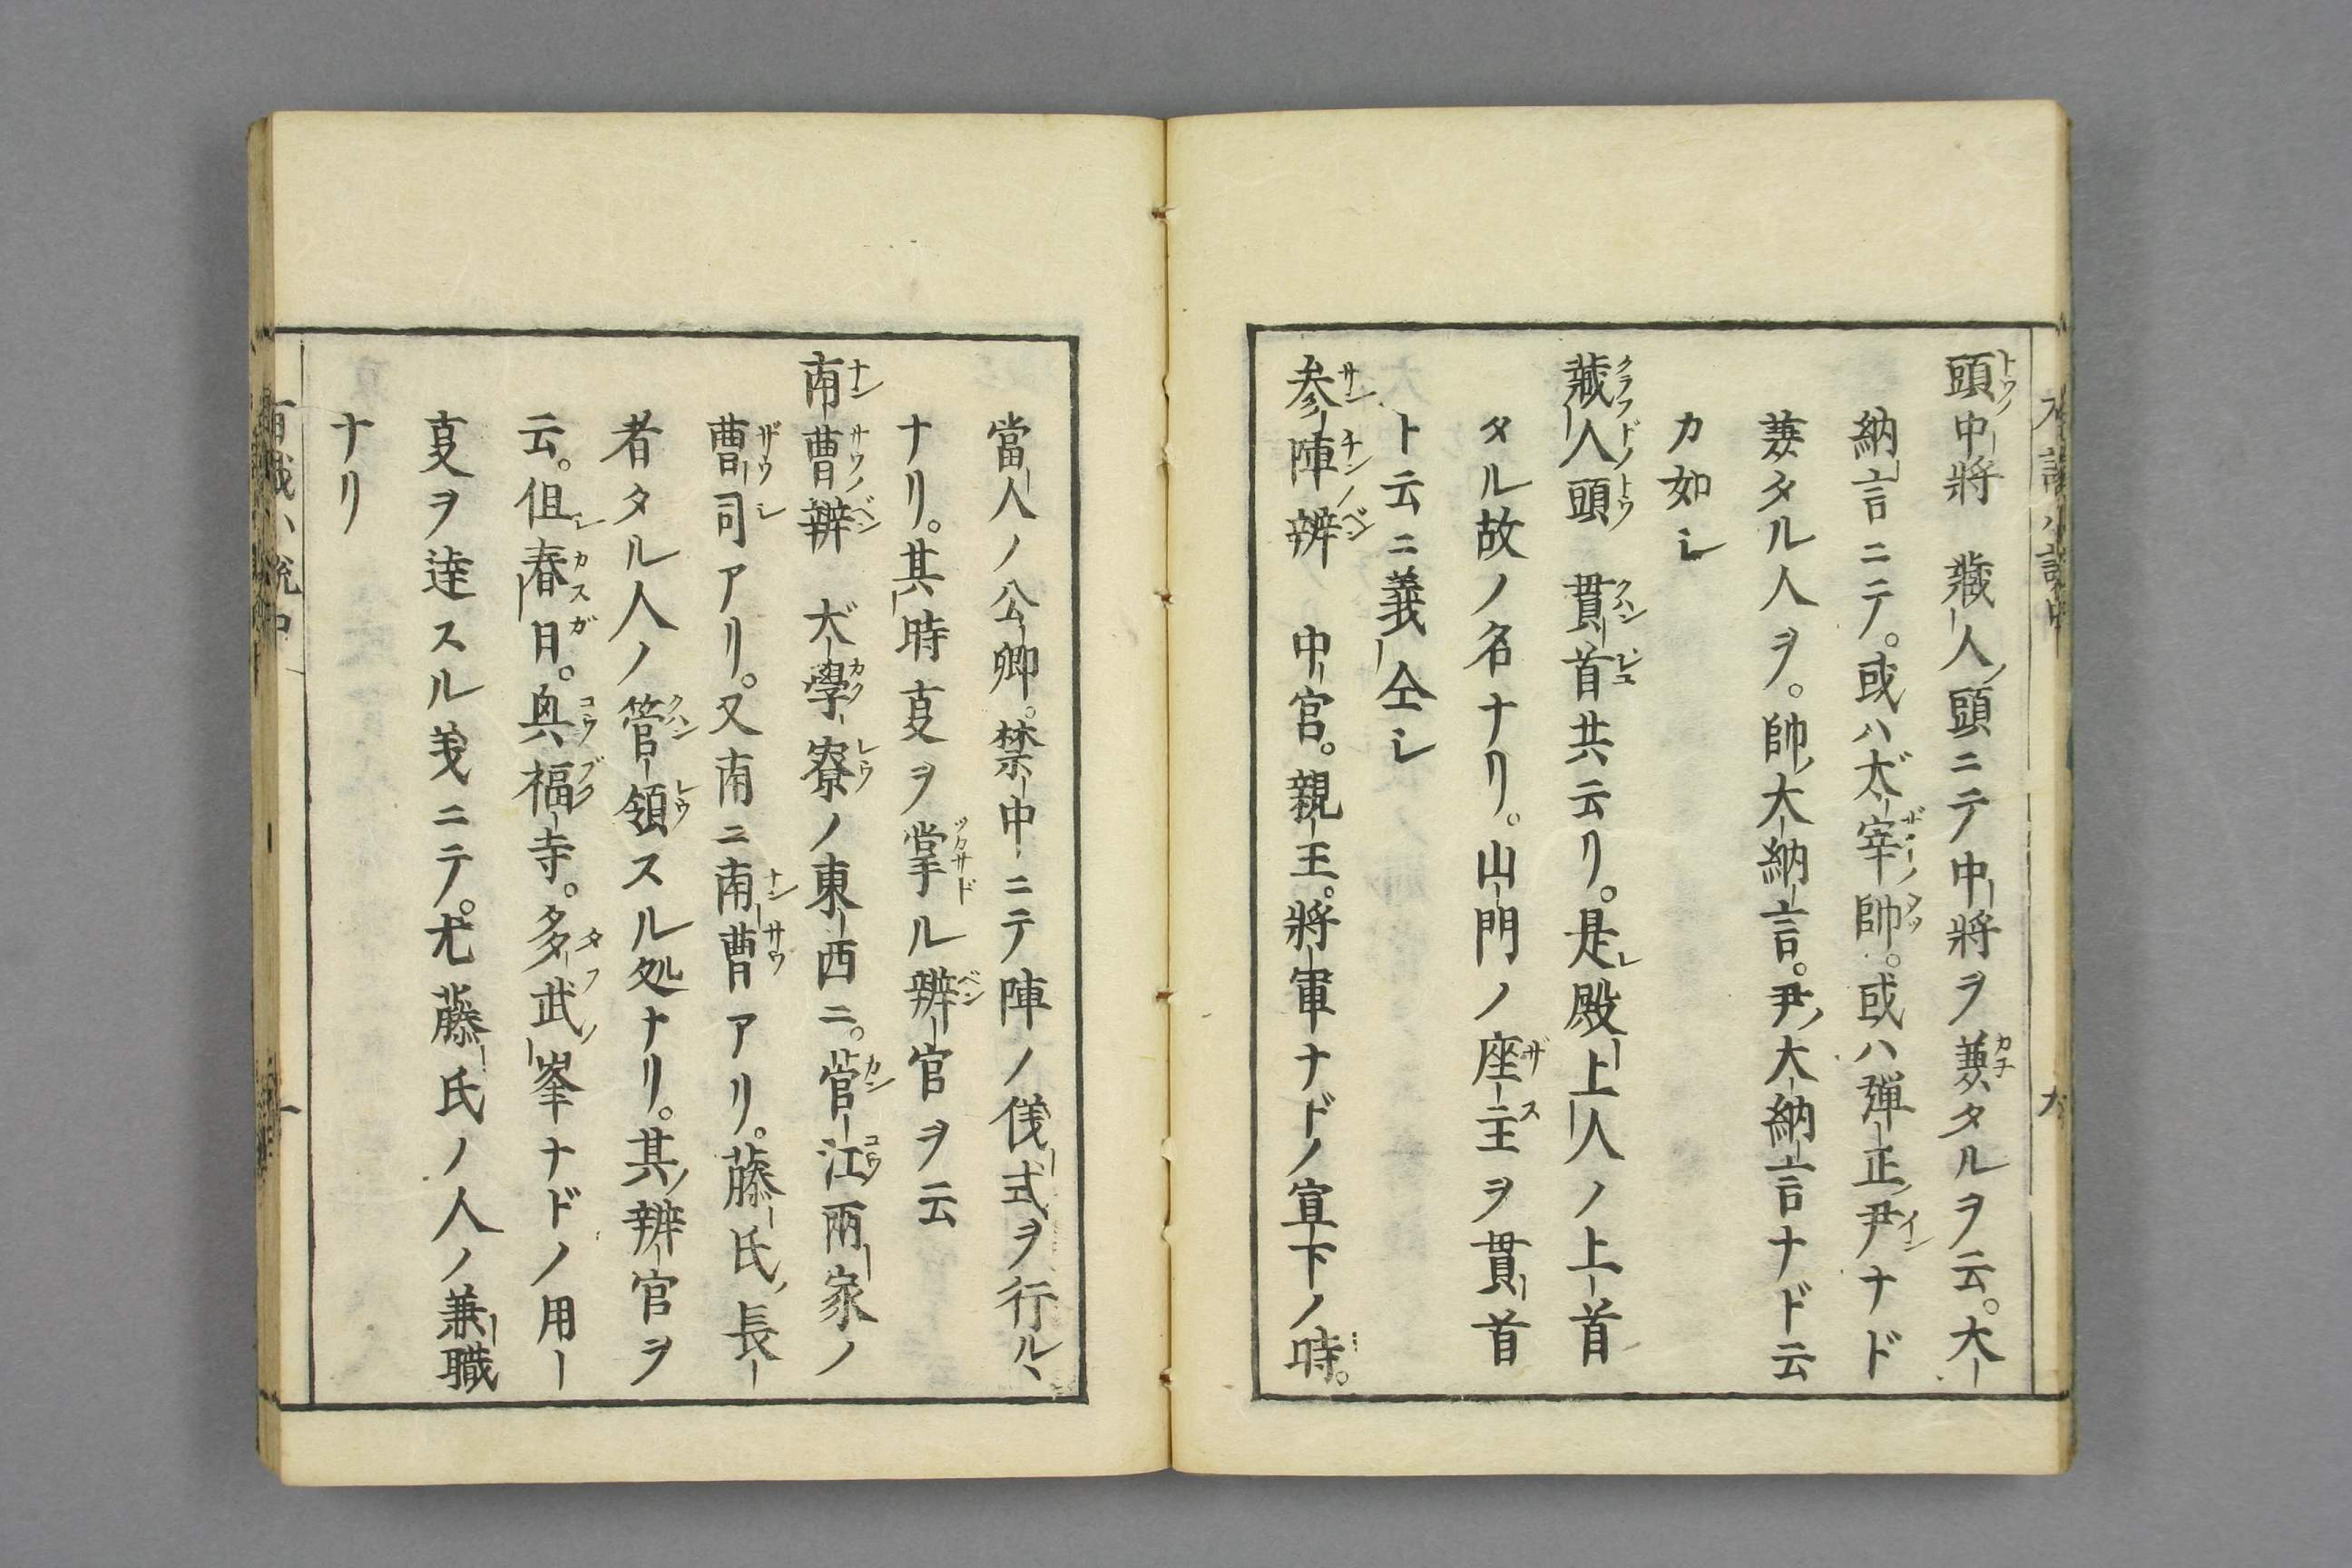 頭中將 藏人頭ニテ中將ヲ兼タルヲ云。大
納言ニテ。或ハ太宰帥。或ハ彈正尹ナド
兼タル人ヲ。帥大納言。尹大納言ナド云
カ如シ
藏人頭 貫首共云リ。是殿上人ノ上首
タル故ノ名ナリ。山門ノ座主ヲ貫首
ト云ニ義仝シ
参陣辨 中官。親王。將軍ナドノ宣下ノ時。
當人ノ公卿。禁中ニテ陣ノ儀式ヲ行ル、
ナリ。其時叓ヲ掌ル辨官ヲ云
南曹辨 大學寮ノ東西ニ。菅江兩家ノ
曹司アリ。又南ニ南曹アリ。藤氏長
者タル人ノ管領スル処ナリ。其辨官ヲ
云。但シ春日。興福寺。多武峯ナドノ用
叓ヲ達スル義ニテ。尤藤氏ノ人ノ兼職
ナリ